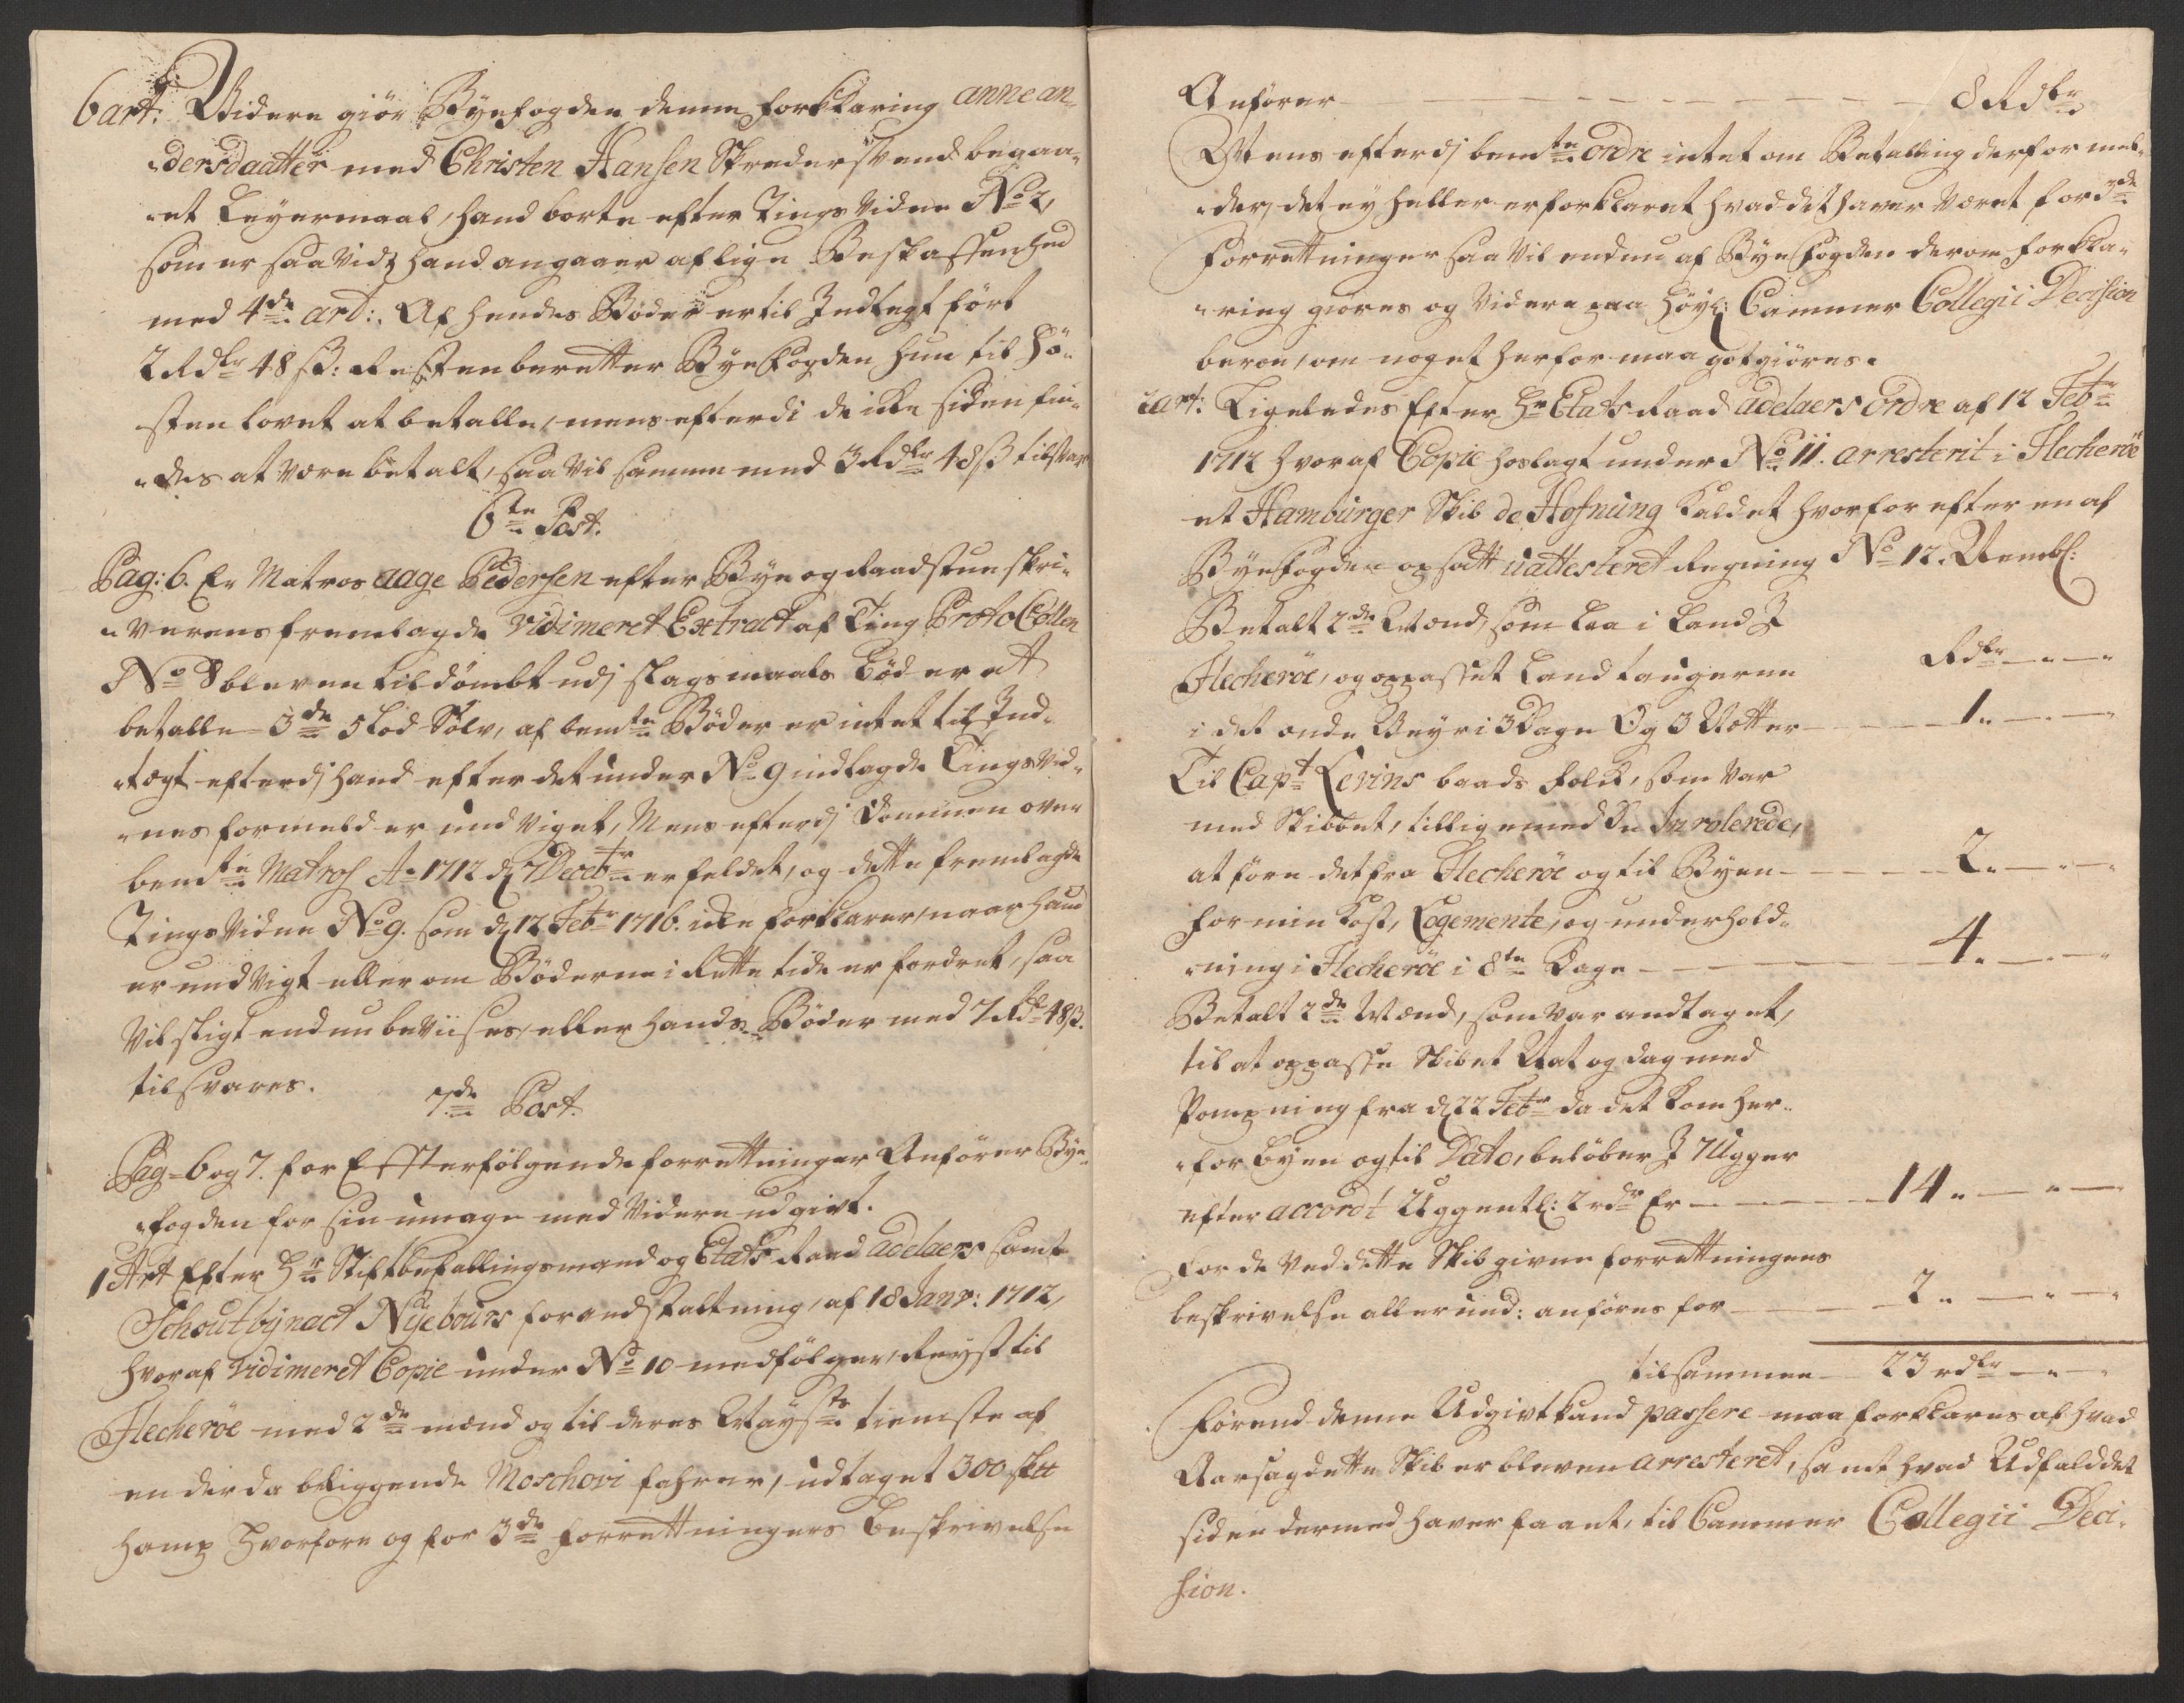 6 art: Widere giör Byefogden denne forklaring anne an-
dersdaatter med Christen Hansen Skredersvend begaa-
et Leyermaal, hand borte efter Tings Vidne No 2,
som er saa vidt hand angaaer af lige Beskaffenhed
med 4de art: Af hendes Bøder er til Indtegt ført
2 Rdlr 48 ß: Resten beretter Byefogden hun til Hø-
sten lovet at betalle, mens efterdi de icke siden fin-
des at vere betalt, saa vil samme med 3 Rdlr 48 ß tilsvar
6te Post.
Pag: 6. Er Matros aage Pedersen efter Bye og Raadstue skri-
verens fremlagde Vidimeret Extract af Ting ProtoCollen
No 8 bleven tildømbt udj slagsmaals bøder at
betalle 3de 5 Lod Sølv, af bemte Bøder er intet til Ind-
tægt efterdj hand efter det under No 9 indlagde Tings vid-
nes formelder und viget, Mens efterdj Dommen over
bemte Matros Ao 1712 d 7 Decbr er feldet, og dette fremlagde
Tings Vidne No 9. som d 12 Febr 1716. icke forklarer, naar hand
er undvigt eller om Bøderne i Rette tide er fordret, saa
vil sligt endnu beviises, eller hands Bøder med 7 Rdr 48 ß.
tilsvares.
7de Post.
Pag- 6 og 7. for Effterfølgende forrettninger Anfører Bye-
fogden for sin umage med videre udgivt.
1 Art Efter Hr Stiftbefallingsmand og Etats Raad adelaers samt
Schoutbynact Nÿebours forandstaltning, af 18 Janr: 1712,
hvoraf Vidimeret Copie under No 10 medfølger, Reyst til
Flecheröe med 2de mænd og til deres Mayts tieniste af
en der da beliggende Moschovi fahrer, udtaget 300 skt
hamp hvorfore og for 3de forrettningers beskrivelse
Anfører - - - - - 8 Rdlr
Mens efterdj bemte ordre intet om Betalling derfor mel-
der, det ey heller er forklaret hvad det haver været for 3de
forrettninger saa vil endnu af Byefogden derom forkla-
ring giøres og videre paa Høyl: Cammer Collegii Decision
beroe, om noget herfor maa gotgiøres.
2 art: Ligeledes Efter Hr Etats Raad adelaers Ordre af 12 Febr
1712 hvoraf Copie hoslagt under No 11. arresterit i Flecheröe
et Hamburger Skib de Hofnung kaldet hvorfor efter en af
Byefogden opsatt uattesteret Regning No 12. Nembl:
Betalt 2de Mænd, som laa i Land J
Flecheröe, og oppasset Land taugerne Rdlr - -
i det onde Veyr i 3 Dage Og 3 Netter - - 1. - -
Til Capt Levins baads folck, som var
med Skibbet, tillige med De Inrolerede,
at føre det fra Flecheröe og til Byen - - 2. - -
for min kost, Logemente, og underhold-
ning i Flecheröe i 8te Dage - - 4. - -
Betalt 2de Mænd, som var andtaget,
til at oppasse Skibet Nat og dag med
Pompning fra d 22 Febr da det kom her-
for byen og til Dato, beløber J 7 Ugger
efter accordt Uggentl: 2 rdr Er - - 14. - -
for de ved dette Skib givne forrettningers
beskrivelse allerund: anføres for - - 2. - -
tilsammen - 23 rdlr - -
førend denne Udgivt kand passere maa forklares af hvad
Aarsag dette Skib er bleven arresteret, samt hvad Udfald det
siden dermed haver faaet, til Cammer Collegii Deci-
sion.